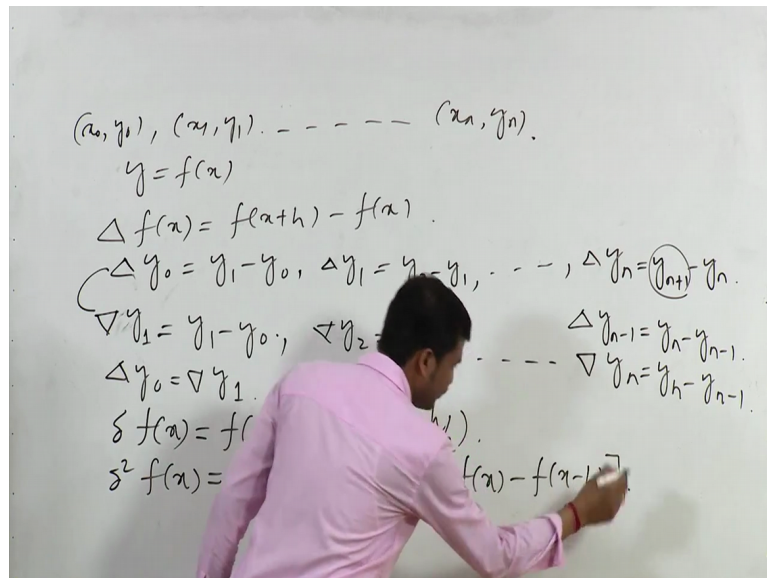 (x₀, y₀), (x₁, y₁). - - - - - - (xₙ, yₙ).
y = f(x)
Δ f(x) = f(x+h) - f(x).
Δ y₀ = y₁ - y₀, Δ y₁ = y₂ - y₁, - - - -, Δ yₙ = yₙ₊₁ - yₙ.
∇ y₁ = y₁ - y₀., ∇ y₂ =
Δ yₙ₋₁ = yₙ - yₙ₋₁.
Δ y₀ = ∇ y₁.
- - - - ∇ yₙ = yₙ - yₙ₋₁.
δ f(x) = f( ).
δ² f(x) = f(x) - f(x-